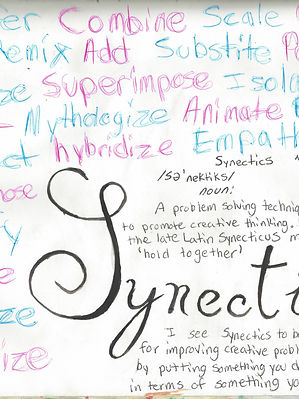 er Combine Scale
Remix Add Substite
Superimpose Isola
ze
Mythologize Animate
ct hybridize Empath
Synectics
/sə'nektiks/
noun:
A problem solving techniq
to promote crecative thinking.
the late Latin Synecticus m
'hold together'
Synecti
ose
fy
ze
ze
ize
I see Synectics to b
for improving creative probl
by putting something you d
in terms of something yo